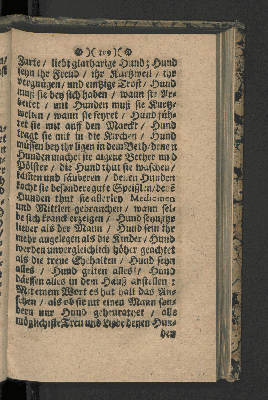 )( 109 )(
Zarte / liebt glatharige Hund; Hund
seyn ihr Freud / ihr Kurtzweil / ihr
vergnügen / und eintzige Trost / Hund
muß sie bey sich haben / wann sie Ar-
beitet / mit Hunden muß sie Kurtz-
weilen / wann sie feyret / Hund füh-
ret sie mit auff den Marckt / Hund
tragt sie mit in die Kirchen / Hund
müssen bey ihr ligen in dem Beth / denen
Hunden machet sie aigene Bether und
Pölster / die Hund thut sie waschen /
und säuberen / denen Hunden
kocht sie besondere gute Speißlen / denē
Hunden thut sie allerley Medicinen
und Mittlen gebrauchen / wann sel-
be sich kranck erzeigen / Hund seynd ihr
lieber als der Mann / Hund seyn ihr
mehr angelegen als die Kinder / Hund
werden unvergleichlich höher geachtet
als die treue Ehehalten / Hund seyn
alles / Hund gelten alles / Hund
därffen alles in dem Hauß anstellen :
Mit einem Wort es hat halt das An-
sehen / als ob sie nit einen Mann son-
dern nur Hund geheurathet / als
möglichste Treu und Liebe denen Hun-
den